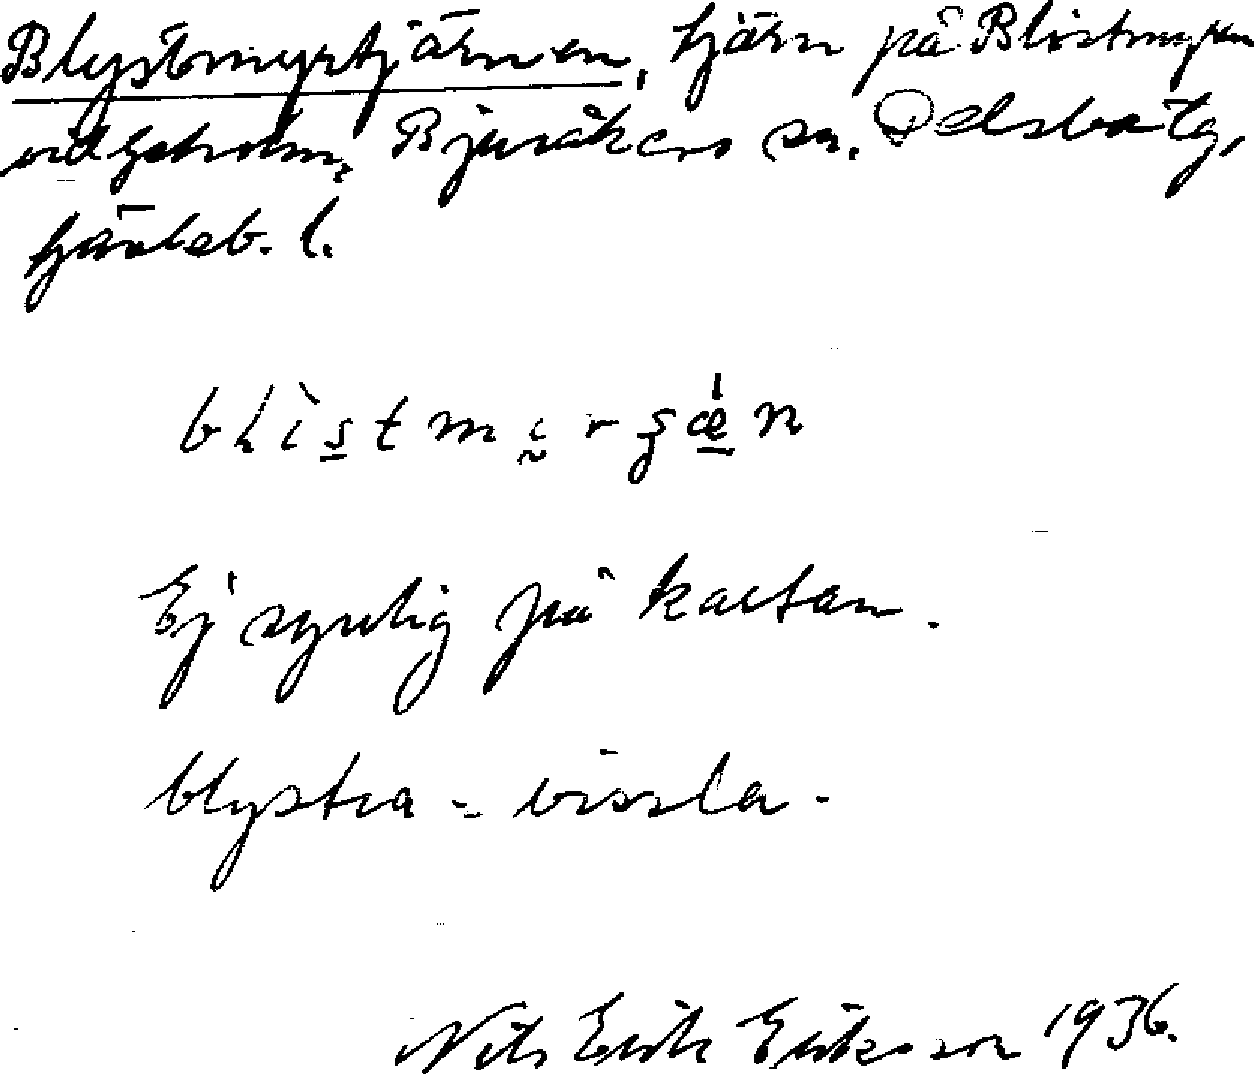 Blystmyrtjärnen, tjärn på Blistmyren
vid Hoholm, Bjuråkers sn. Delsbo tg,
Gävleb. l.
blìstmirʂǽn
Ej synlig på kartan.
blystra = vissla.
Nils Erik Eriksson 1936.